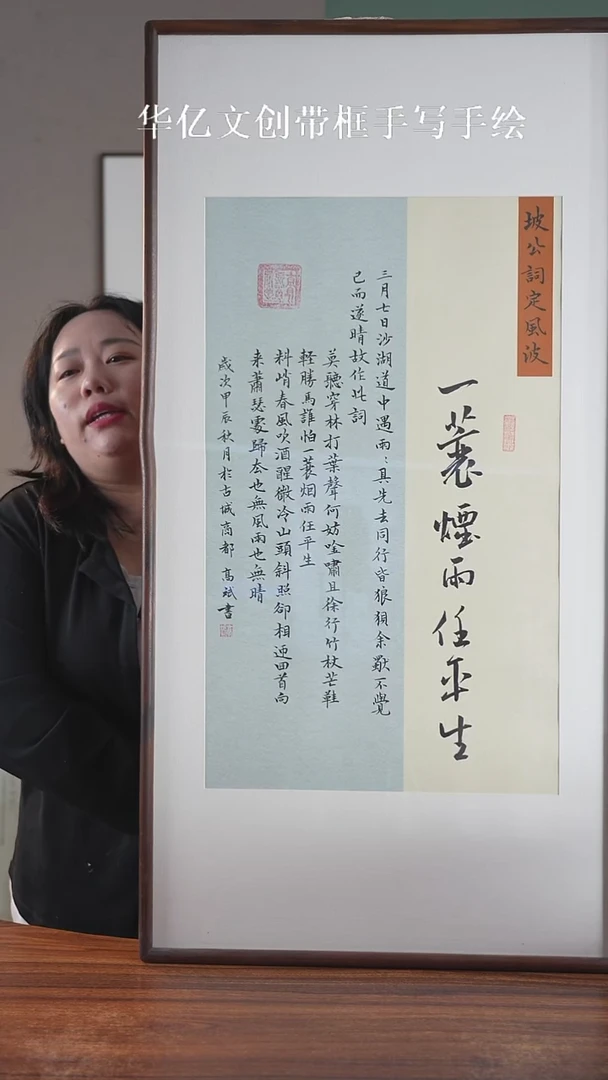 华亿文创带框手写手绘
坡公詞定風波
一蓑煙雨任平生
三月七日沙湖道中遇雨、具先去同行皆狼狽余獨不覺
已而遂晴故作此詞
莫聽穿林打葉聲何妨唫嘯且徐行竹杖芒鞋
輕勝馬誰怕一蓑烟雨任平生
料峭春風吹酒醒微冷山頭斜照卻相迎回首向
来蕭瑟處歸去也無風雨也無晴
歲次甲辰秋月於古城商都 高斌書